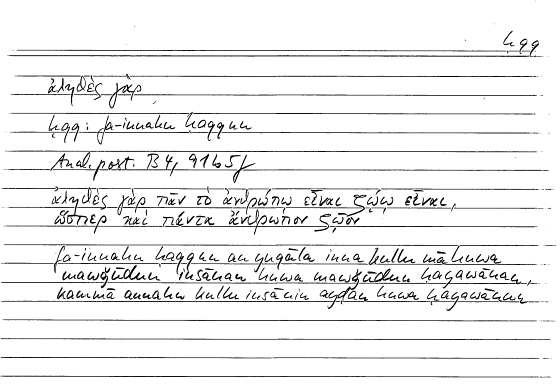 ḥqq
ἀληθὲς γὰρ
ḥqq: fa-innahu ḥaqqun
Anal. post. B 4, 91 b 5 f
ἀληθὲς γὰρ πᾶν τὸ ἀνθρώπῳ εἶναι ζῴῳ εἶναι,
ὥσπερ καὶ πάντα ἄνθρωπον ζῷον
fa-innahu ḥaqqun an yuqāla inna kulla mā huwa
mawǧūdun insānan huwa mawǧūdun ḥayawānan,
kammā annahu kullu insānin ayḍan huwa ḥayawānun